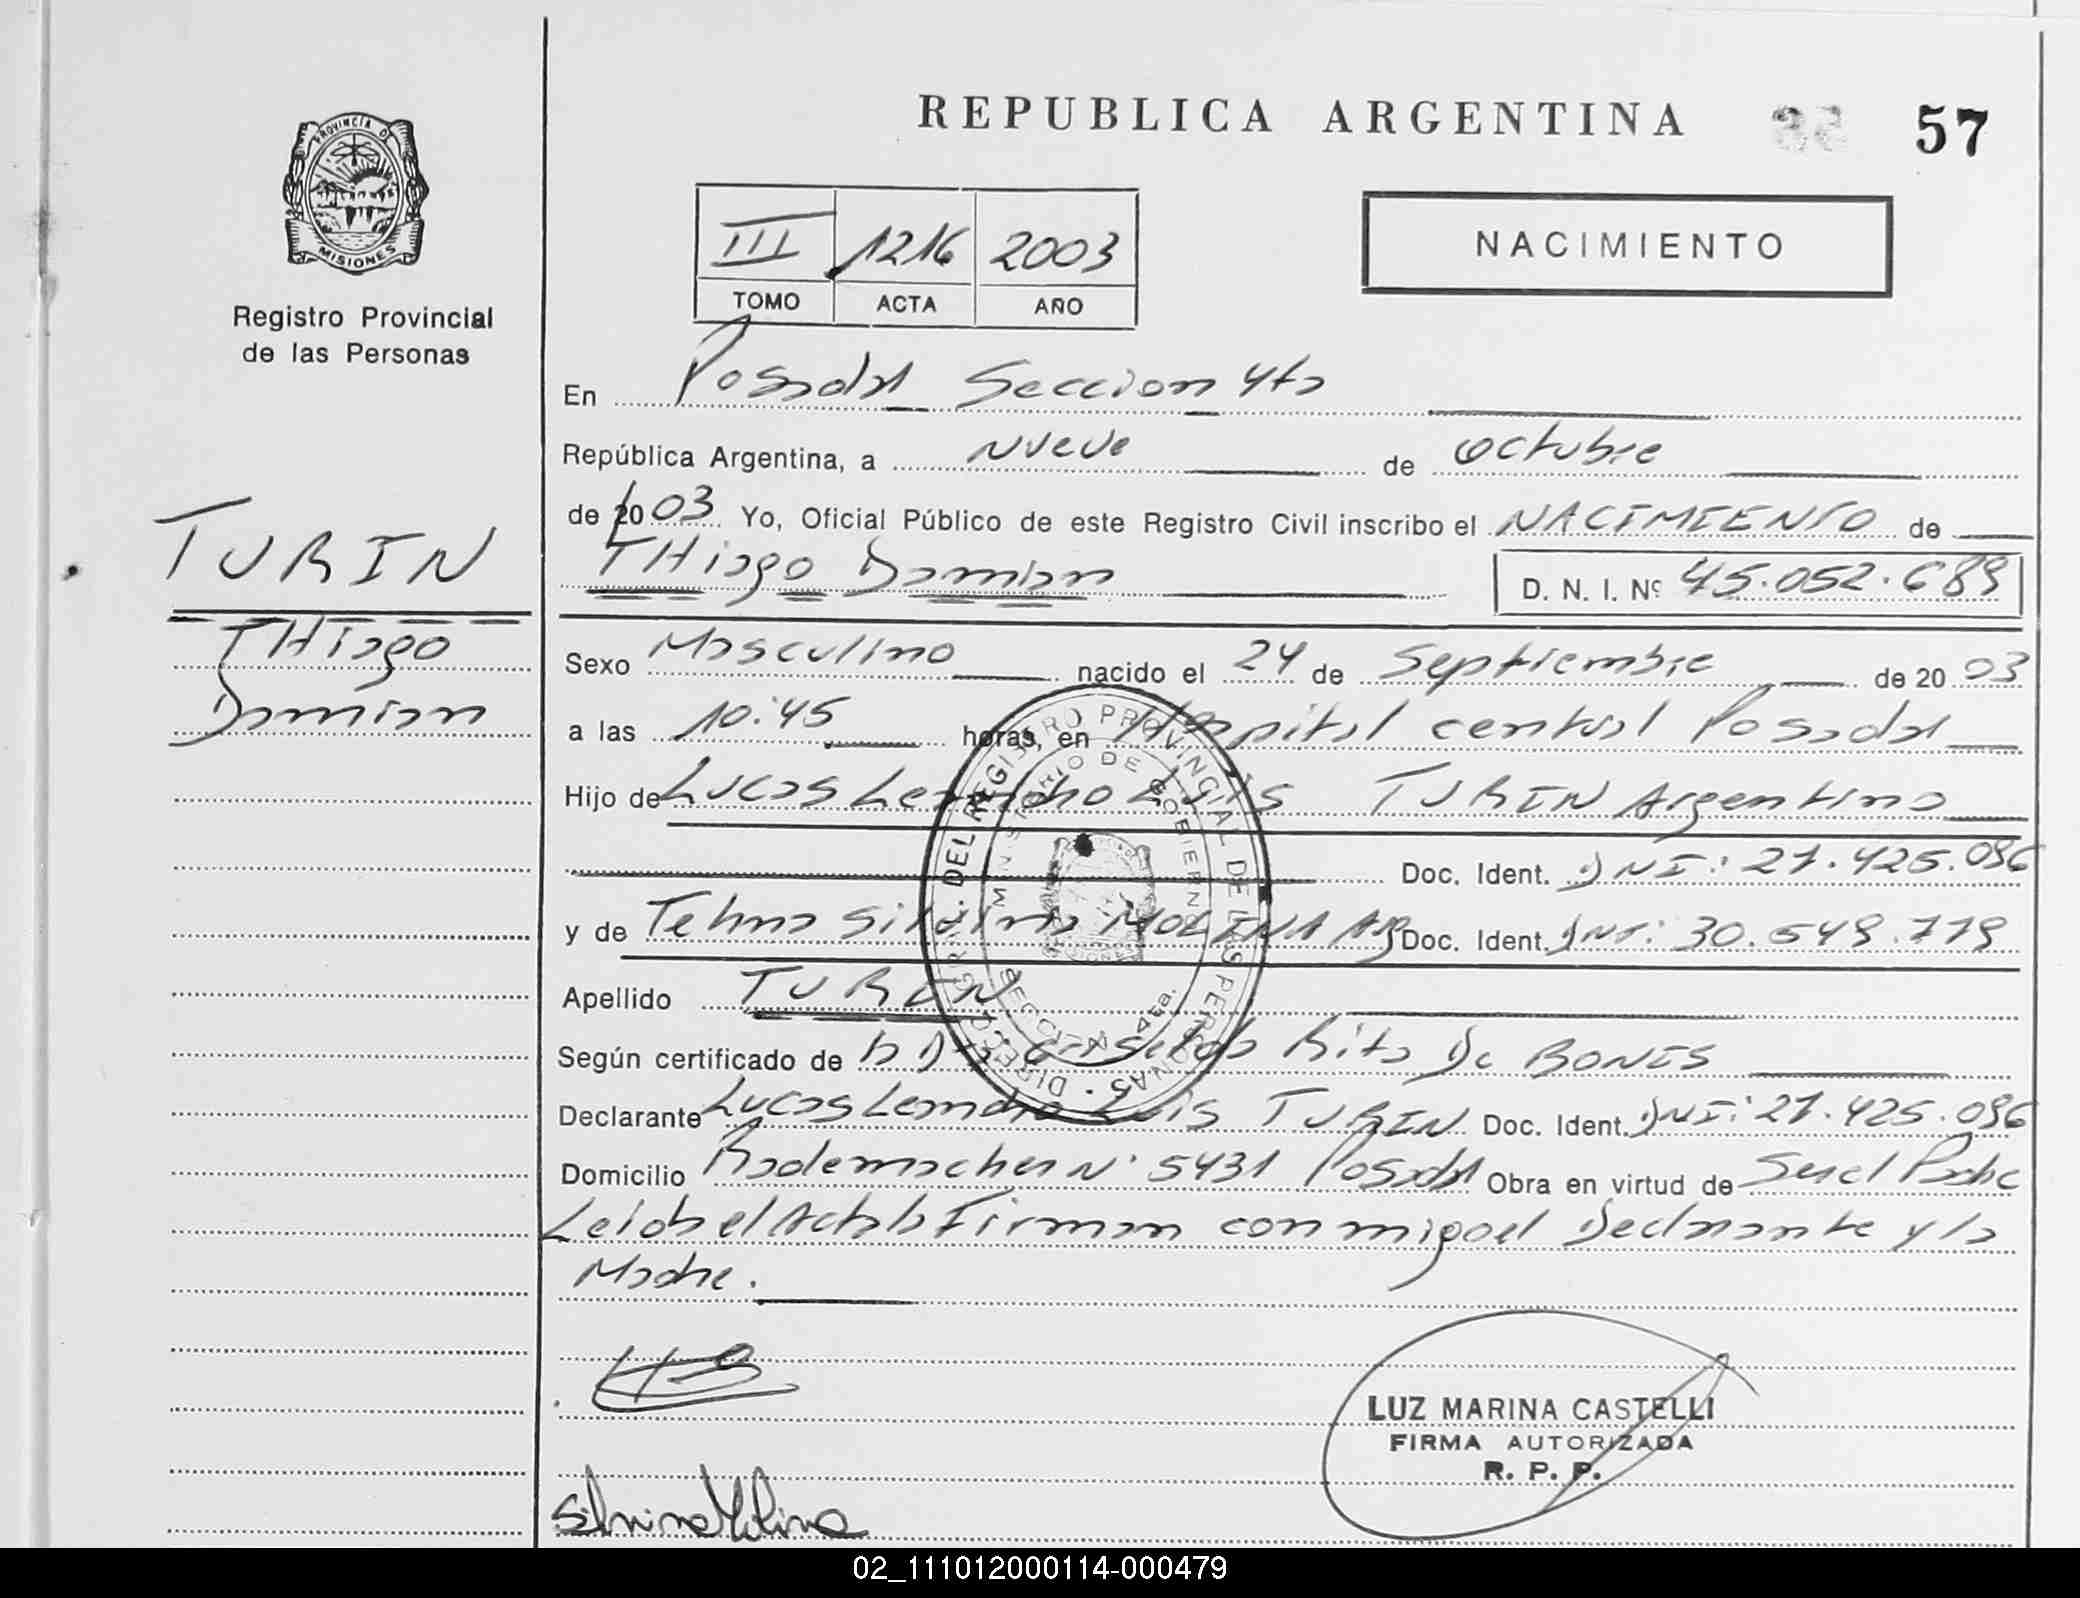 REPUBLICA ARGENTINA
57
PROVINCIA DE
MISIONES
Registro Provincial
de las Personas
III 1216 2003
TOMO ACTA AÑO
NACIMIENTO
En Posadas Seccion 4ta
República Argentina, a nueve de octubre
de 2003 Yo, Oficial Público de este Registro Civil inscribo el NACIMIENTO de
THiago Damian D. N. I. Nº 45.052.689
TURIN
THiago
Damian
Sexo Masculino nacido el 24 de Septiembre de 2003
a las 10:45 horas, en Hospital central Posadas
Hijo de Lucas Leandro Luis TURIN Argentino
Doc. Ident. DNI: 27.425.096
y de Telma Silvina MOLINA Arg Doc. Ident. DNI: 30.549.779
Apellido TURIN
Según certificado de la Rita De BONIS
Declarante Lucas Leandro Luis TURIN Doc. Ident. DNI: 27.425.096
Domicilio Rademacher Nº 5431 Posadas Obra en virtud de Ser el Padre
Leida el Acta la Firman conmigo el Declarante y la
Madre.
DIRECC. GRAL. DEL REGISTRO PROVINCIAL DE LAS PERSONAS
MINISTERIO DE GOBIERNO
SECCION 4ta.
LUZ MARINA CASTELLI
FIRMA AUTORIZADA
R. P. P.
Silvina Molina
02_111012000114-000479